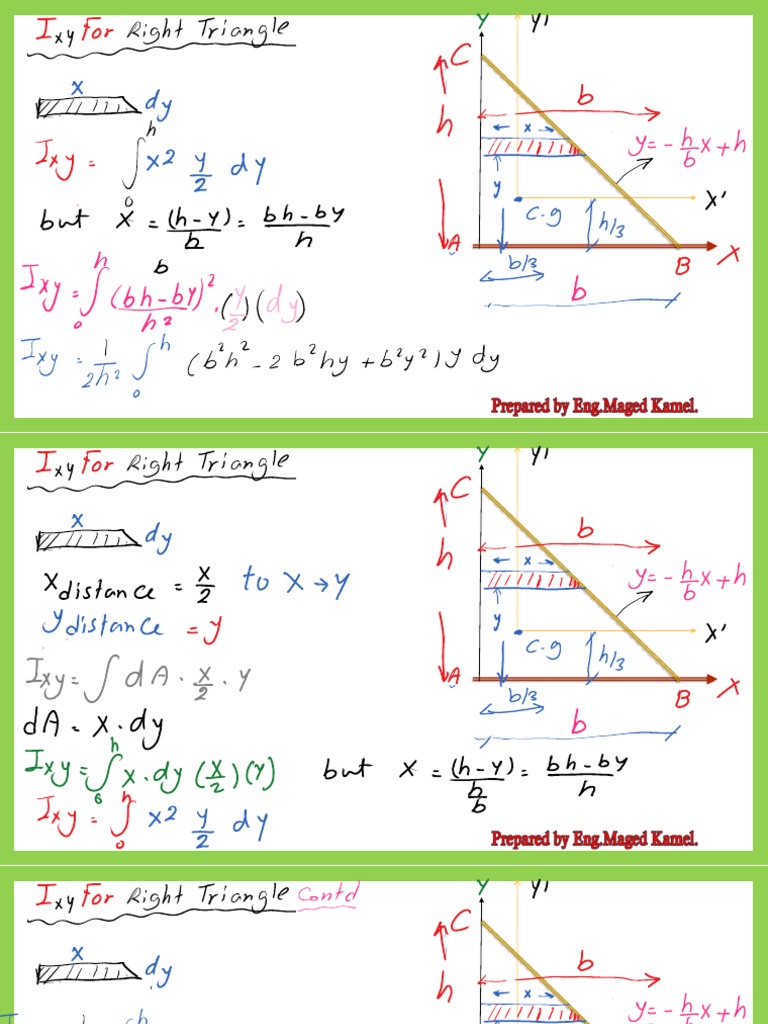 Ixy For Right Triangle
x
dy
Ixy = ∫₀ʰ x2 y/2 dy
but x = (h-y)/(h/b) = (bh-by)/h
Ixy = ∫₀ʰ (bh-by)²/h² · (y/2) (dy)
Ixy = 1/2h² ∫₀ʰ (b²h² - 2 b²hy + b²y²) y dy
Y
y'
C
b
h
x
y = -h/b x + h
y
c.g
x'
h/3
A
b/3
B
X
b
Prepared by Eng.Maged Kamel.
Ixy For Right Triangle
x
dy
x distance = x/2 to X → Y
y distance = y
Ixy = ∫ dA · x/2 · y
dA = x · dy
Ixy = ∫₀ʰ x · dy (x/2) (y)
but x = (h-y)/(h/b) = (bh-by)/h
Ixy = ∫₀ʰ x2 y/2 dy
Y
y'
C
b
h
x
y = -h/b x + h
y
c.g
x'
h/3
A
b/3
B
X
b
Prepared by Eng.Maged Kamel.
Ixy For Right Triangle Contd
x
dy
Y
y'
C
b
h
x
y = -h/b x + h